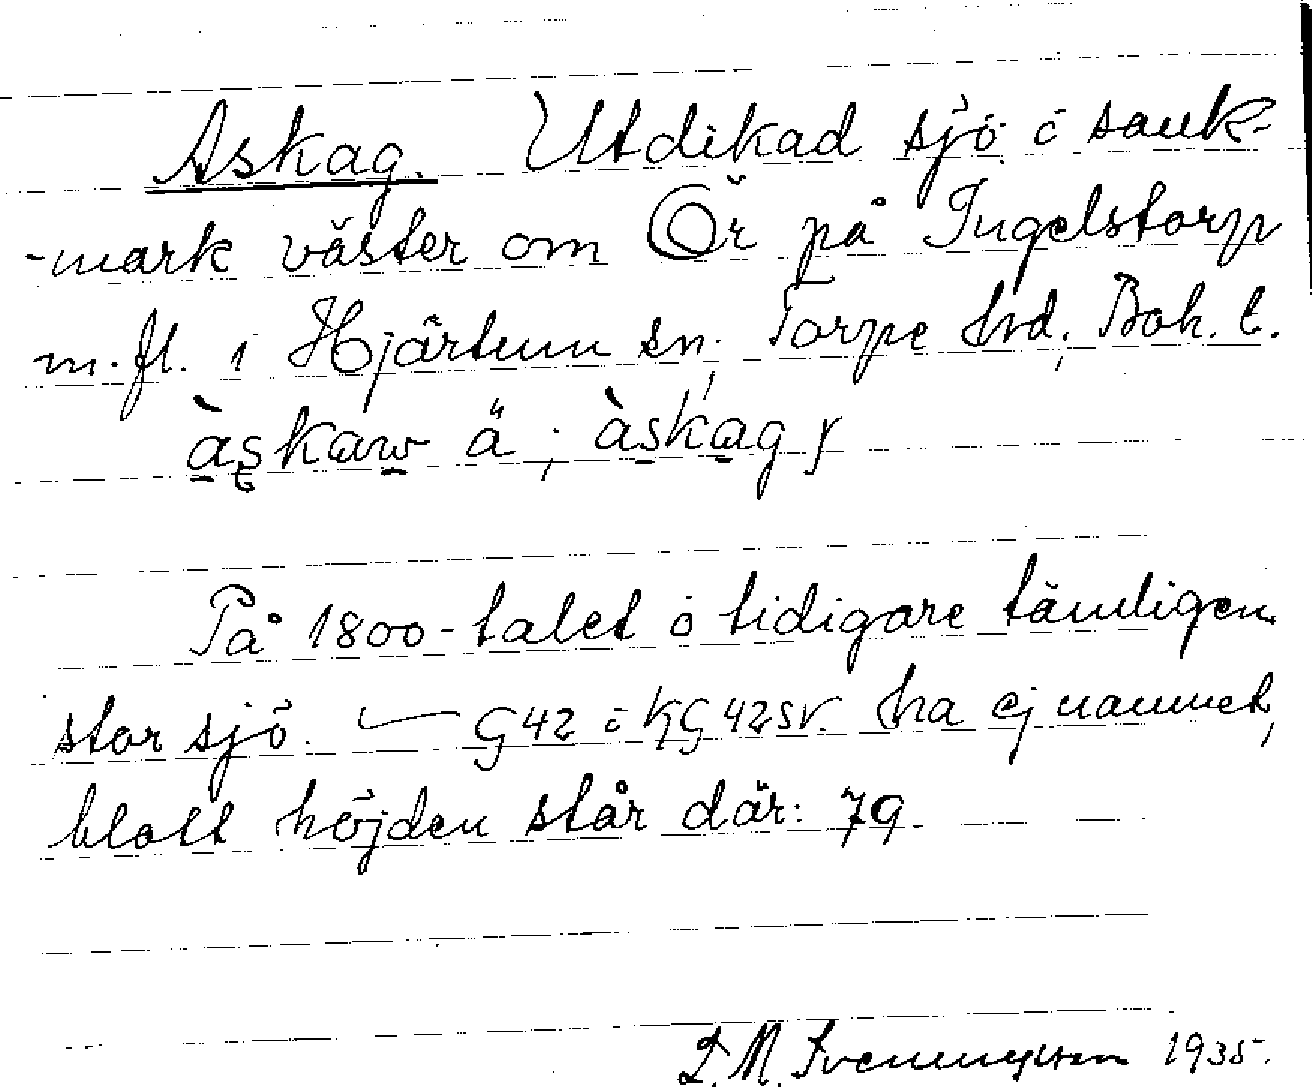 Askag. Utdikad sjö o sank-
-mark väster om Ör på Ingelstorp
m. fl. i Hjärtum sn, Torpe hrd, Boh. l.
àskaw ä ; àskag y
På 1800-talet o tidigare tämligen
stor sjö. — G42 o KG42SV. ha ej namnet,
blott höjden står där: 79.
1935.